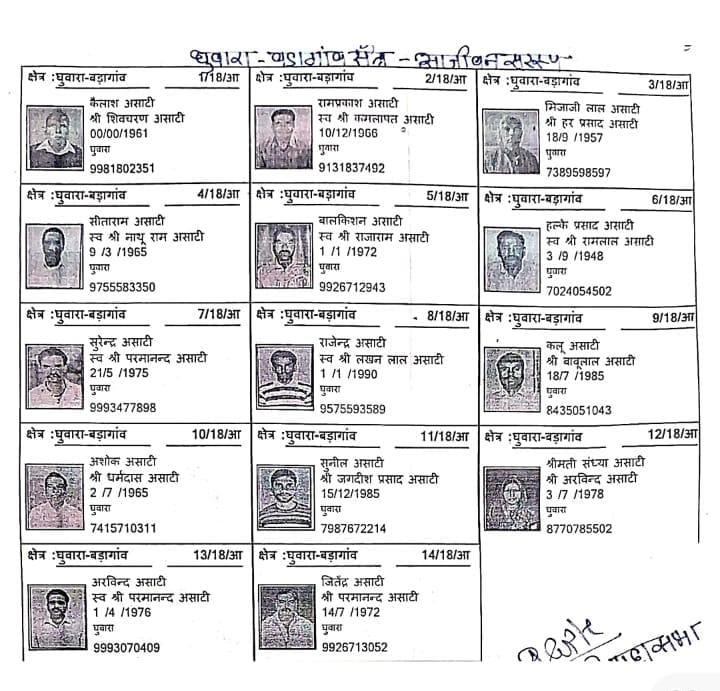 घुवारा - बडागांव क्षेत्र - आजीवन सदस्य
क्षेत्र :घुवारा-बड़ागांव 1/18/आ
कैलाश असाटी
श्री शिवचरण असाटी
00/00/1961
घुवारा
9981802351
क्षेत्र :घुवारा-बड़ागांव 2/18/आ
रामप्रकाश असाटी
स्व श्री कमलापत असाटी
10/12/1966
घुवारा
9131837492
क्षेत्र :घुवारा-बड़ागांव 3/18/आ
मिजाजी लाल असाटी
श्री हर प्रसाद असाटी
18/9 /1957
घुवारा
7389598597
क्षेत्र :घुवारा-बड़ागांव 4/18/आ
सीताराम असाटी
स्व श्री नाथू राम असाटी
9 /3 /1965
घुवारा
9755583350
क्षेत्र :घुवारा-बड़ागांव 5/18/आ
बालकिशन असाटी
स्व श्री राजाराम असाटी
1 /1 /1972
घुवारा
9926712943
क्षेत्र :घुवारा-बड़ागांव 6/18/आ
हल्के प्रसाद असाटी
स्व श्री रामलाल असाटी
3 /9 /1948
घुवारा
7024054502
क्षेत्र :घुवारा-बड़ागांव 7/18/आ
सुरेन्द्र असाटी
स्व श्री परमानन्द असाटी
21/5 /1975
घुवारा
9993477898
क्षेत्र :घुवारा-बड़ागांव 8/18/आ
राजेन्द्र असाटी
स्व श्री लखन लाल असाटी
1 /1 /1990
घुवारा
9575593589
क्षेत्र :घुवारा-बड़ागांव 9/18/आ
कलू असाटी
श्री बाबूलाल असाटी
18/7 /1985
घुवारा
8435051043
क्षेत्र :घुवारा-बड़ागांव 10/18/आ
अशोक असाटी
श्री धर्मदास असाटी
2 /7 /1965
घुवारा
7415710311
क्षेत्र :घुवारा-बड़ागांव 11/18/आ
सुनील असाटी
श्री जगदीश प्रसाद असाटी
15/12/1985
घुवारा
7987672214
क्षेत्र :घुवारा-बड़ागांव 12/18/आ
श्रीमती संध्या असाटी
श्री अरविन्द असाटी
3 /7 /1978
घुवारा
8770785502
क्षेत्र :घुवारा-बड़ागांव 13/18/आ
अरविन्द असाटी
स्व श्री परमानन्द असाटी
1 /4 /1976
घुवारा
9993070409
क्षेत्र :घुवारा-बड़ागांव 14/18/आ
जितेंद्र असाटी
श्री परमानन्द असाटी
14/7 /1972
घुवारा
9926713052